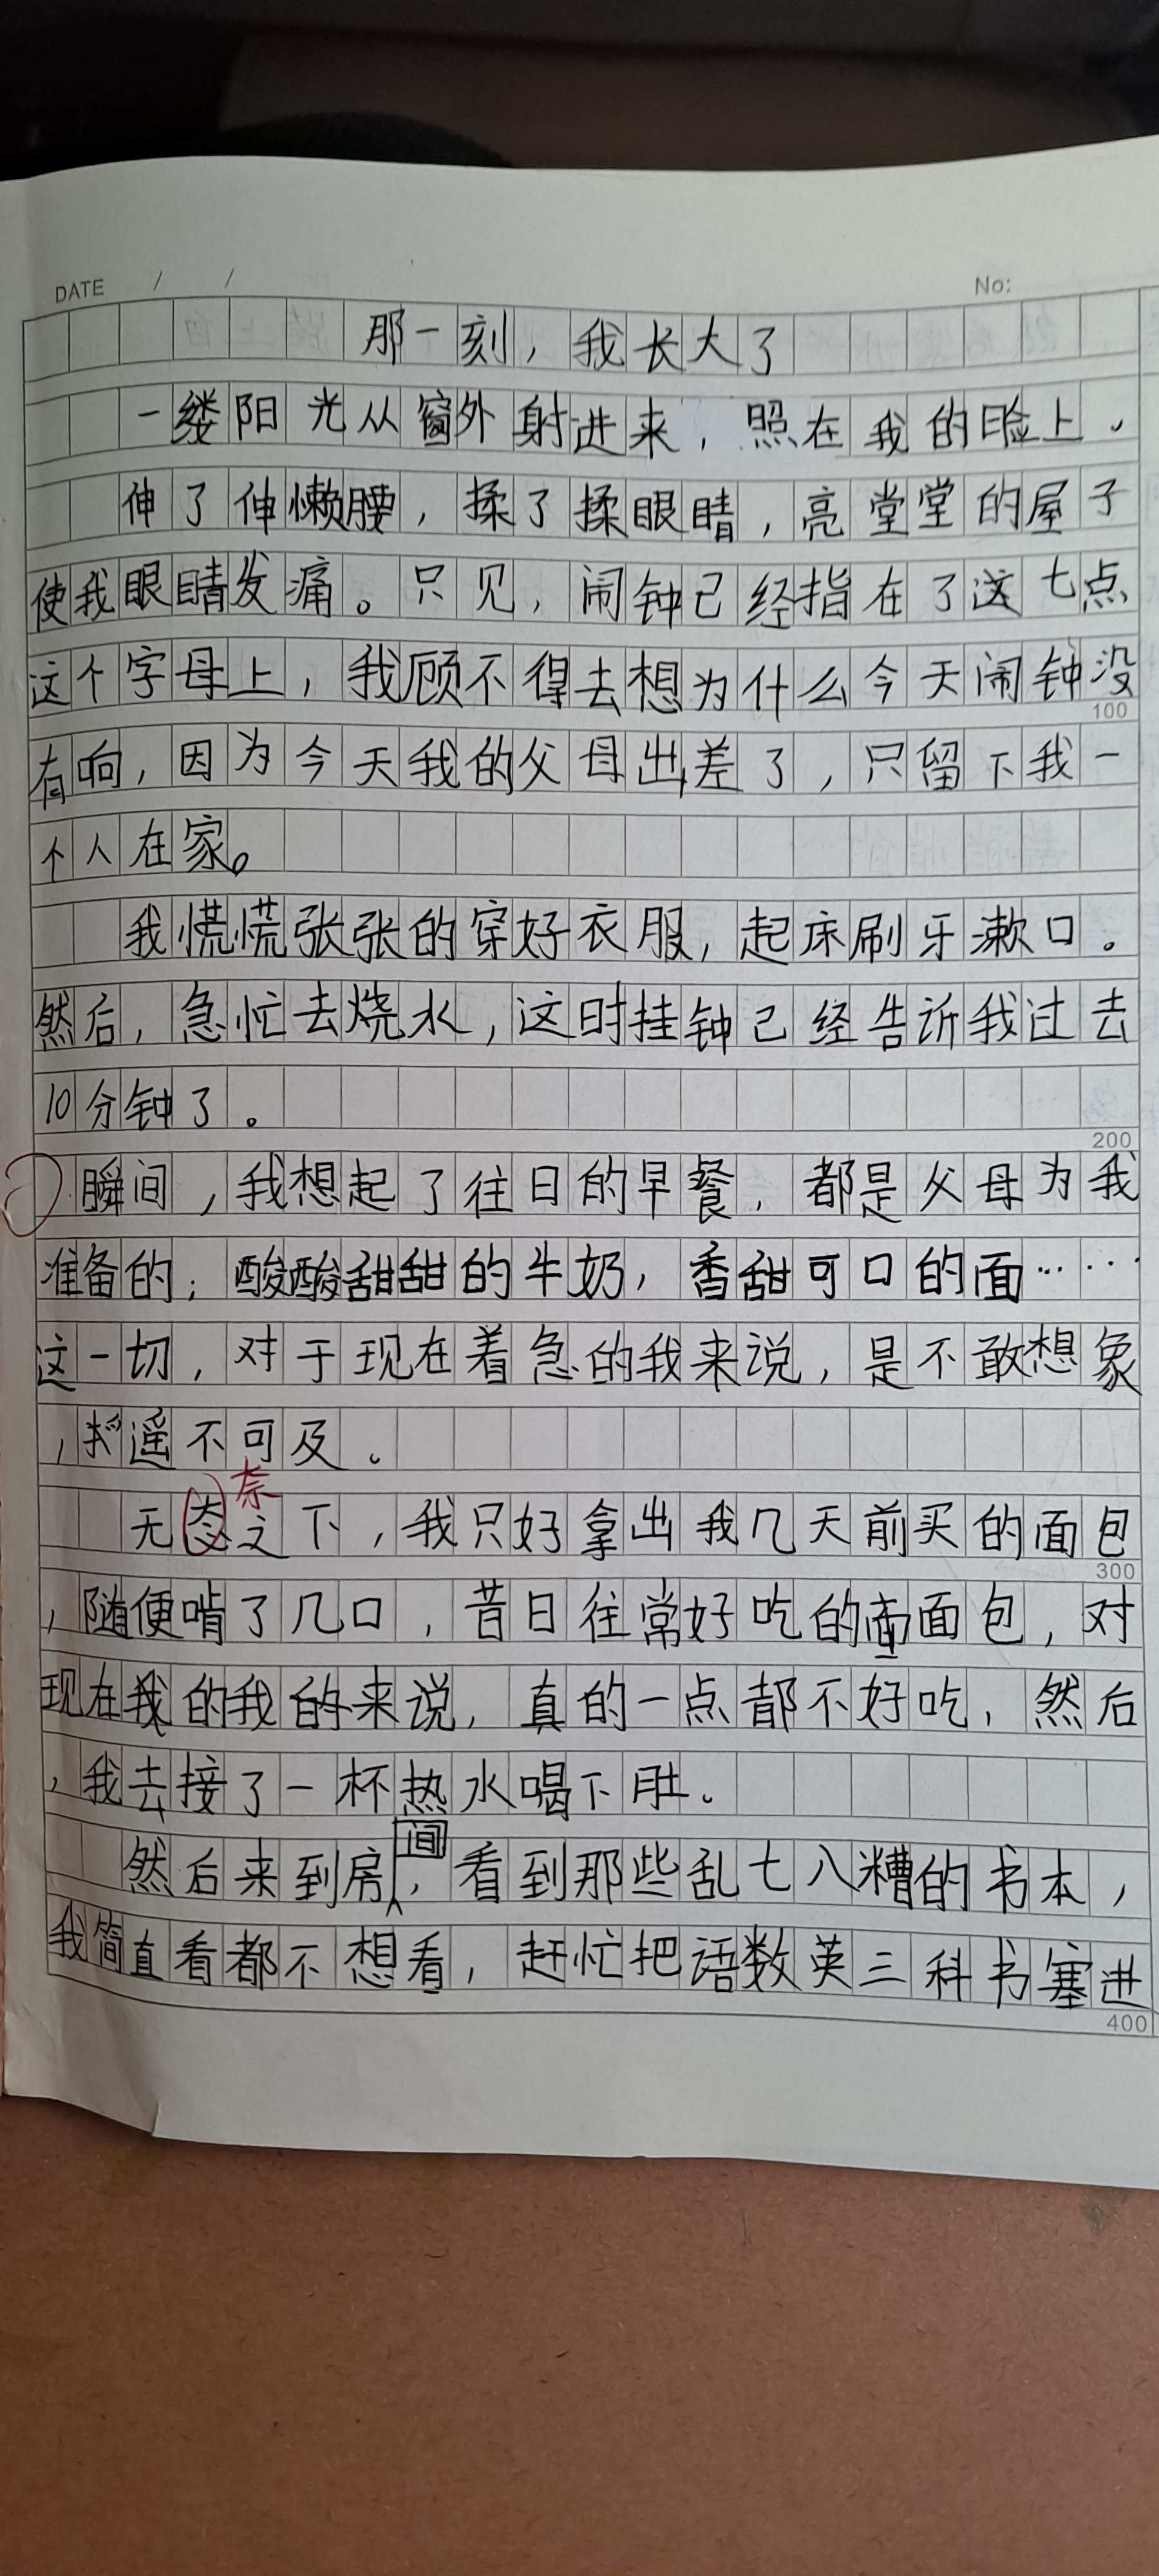 DATE / / No:
那一刻，我长大了
一缕阳光从窗外身进来，照在我的脸上，
伸了伸懒腰，揉了揉眼睛，亮堂堂的屋子
使我眼睛发痛。只见，闹钟已经指在了这七点
这个字母上，我顾不得去想为什么今天闹钟没
100
有响，因为今天我的父母出差了，只留下我一
个人在家。
我慌慌张张的穿好衣服，起床刷牙漱口。
然后，急忙去烧水，这时挂钟已经告诉我过去
10分钟了。
200
瞬间，我想起了往日的早餐，都是父母为我
准备的；酸酸甜甜的牛奶，香甜可口的面……
这一切，对于现在着急的我来说，是不敢想象
，遥不可及。
奈
无态之下，我只好拿出我几天前买的面包
300
，随便啃了几口，昔日往常好吃的面包，对
现在我的我的来说，真的一点都不好吃，然后
，我去接了一杯热水喝下肚。
间
然后来到房，看到那些乱七八糟的书本，
我简直看都不想看，赶忙把语数英三科书塞进
400